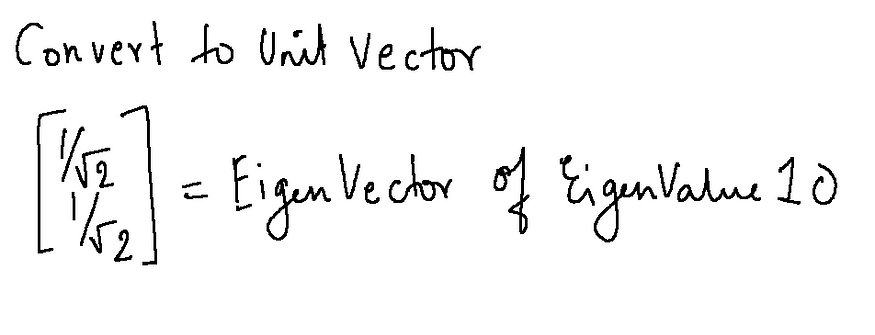 Convert to Unit Vector
[1/√2
1/√2] = EigenVector of EigenValue 10